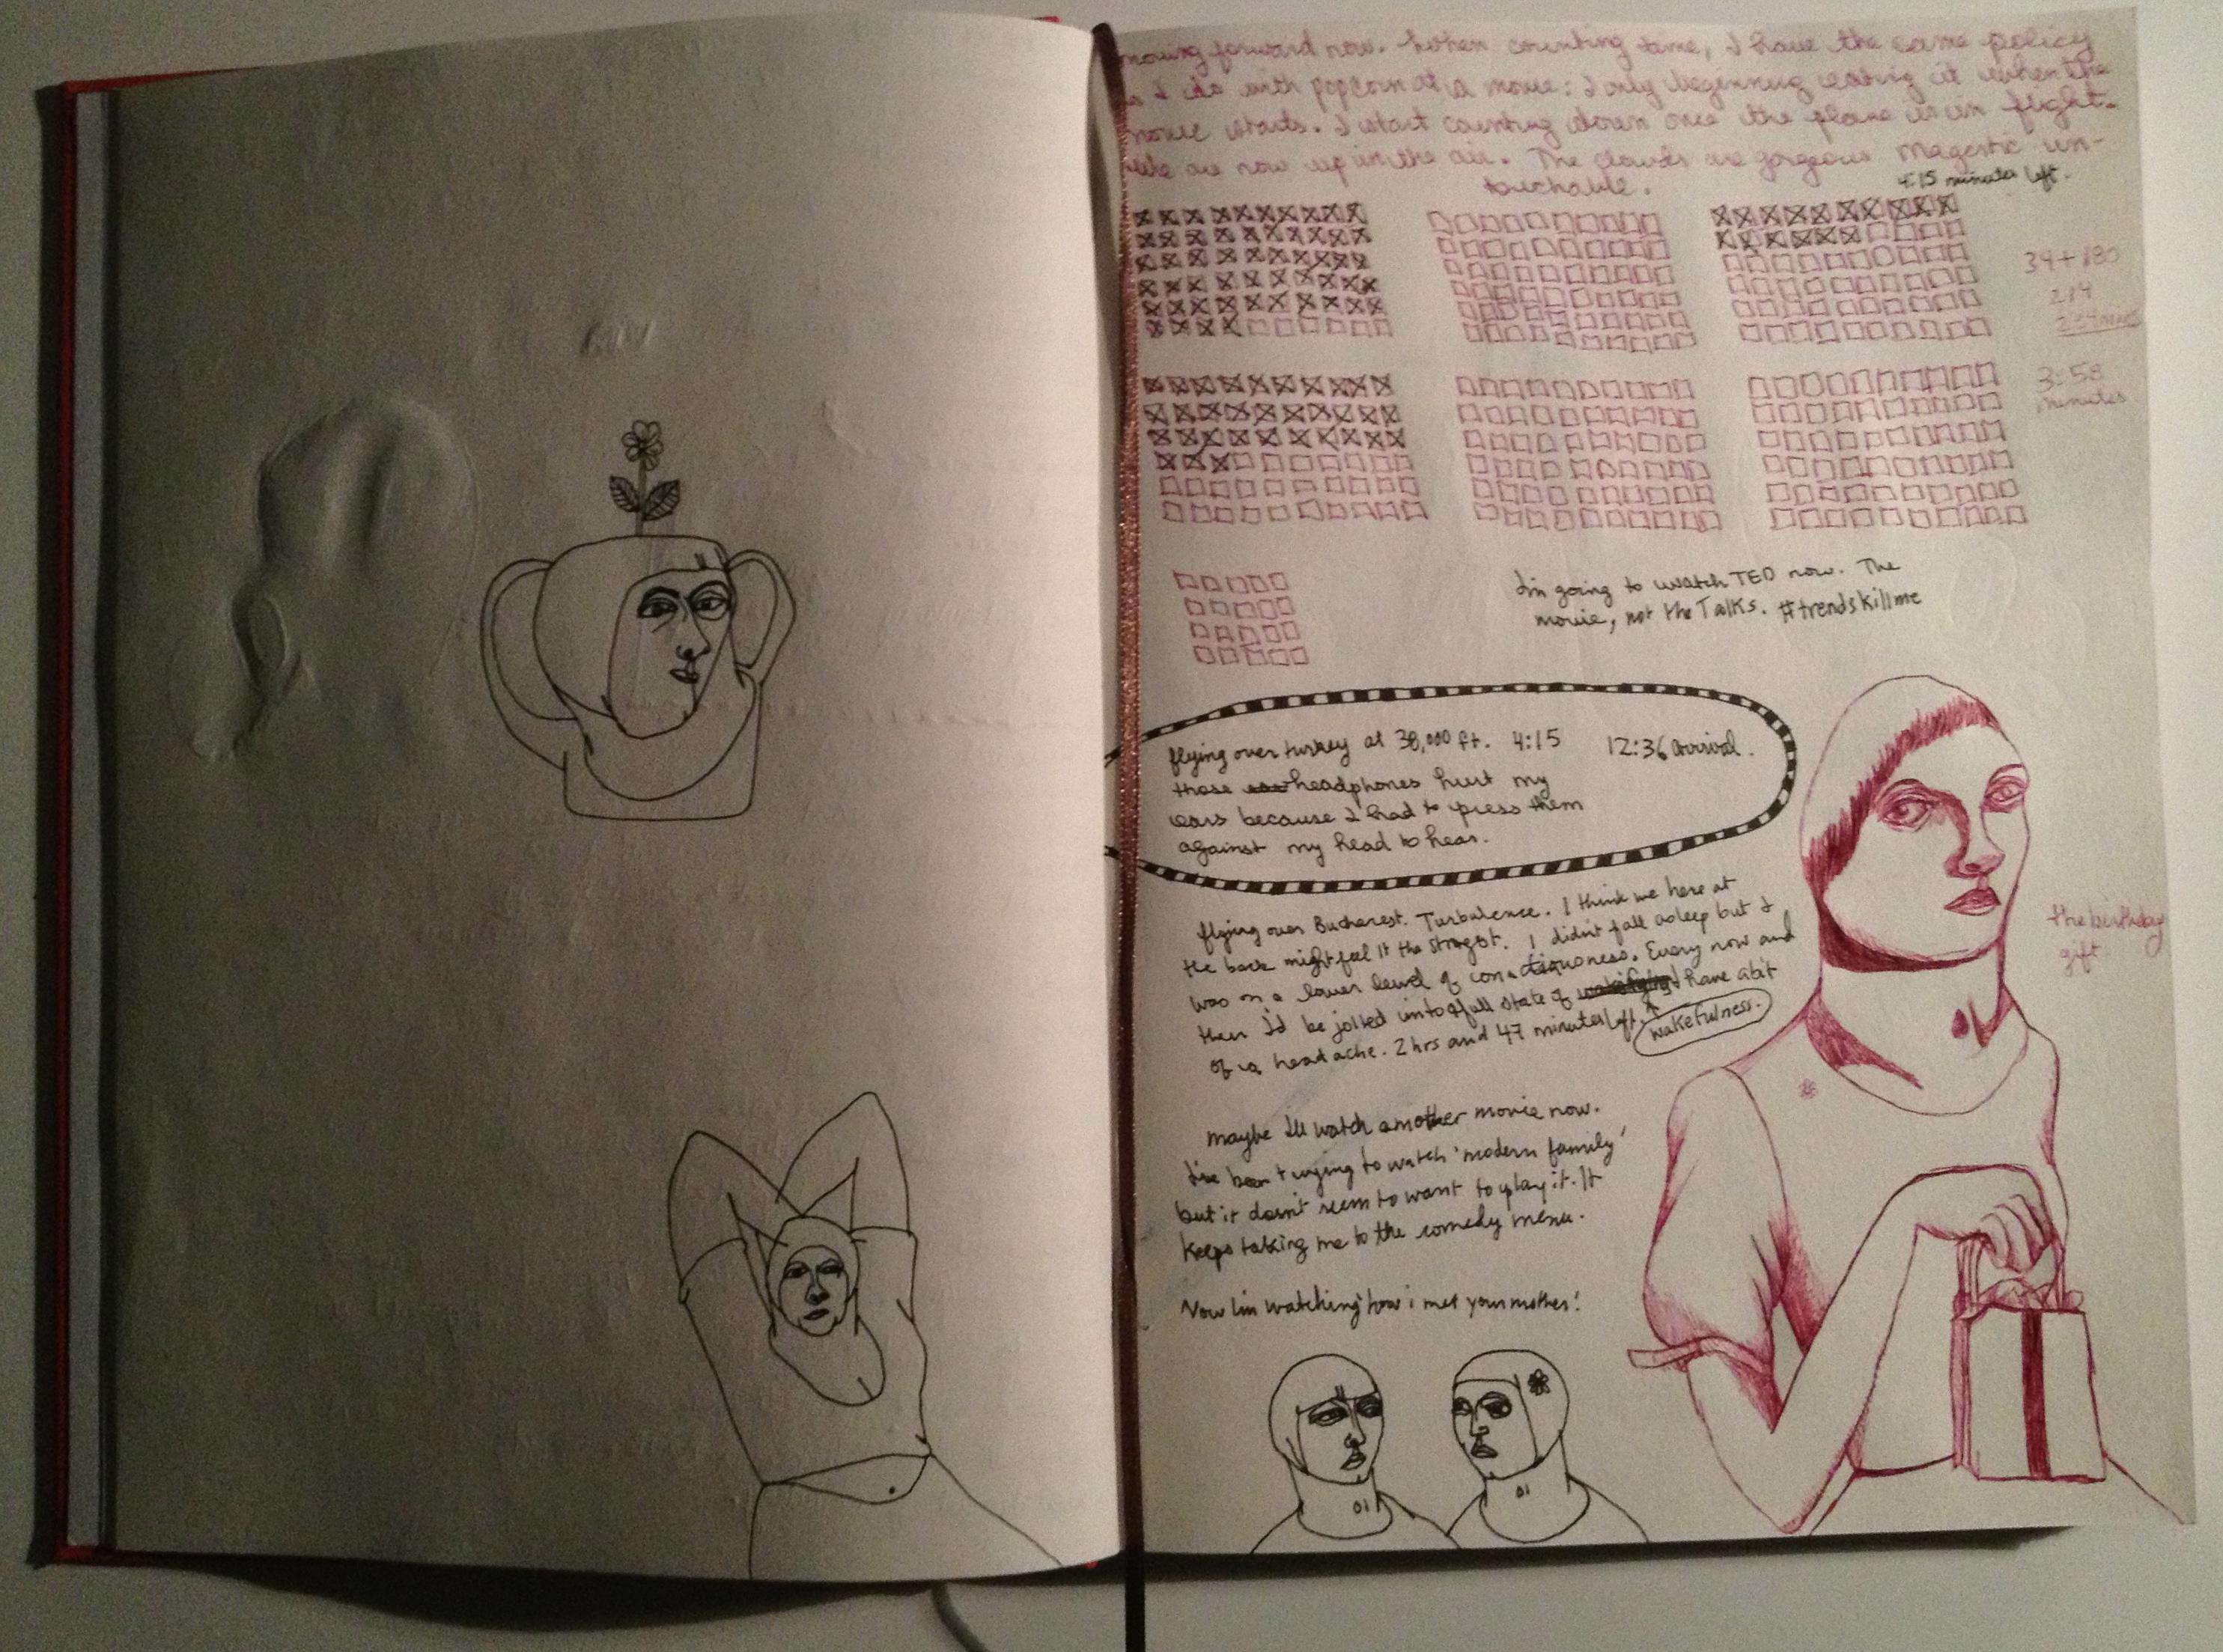 moving forward now. When counting time, I have the same policy
as I do with popcorn at a movie: I only beginning eating it when the
movie starts. I start counting down once the plane is in flight.
We are now up in the air. The clouds are gorgeous magestic un-
touchable.
4:15 minutes left.
34+180
214
3:58
minutes
I'm going to watch TED now. The
movie, not the Talks. #trendskillme
flying over turkey at 38,000 ft. 4:15 12:36 arrival.
those headphones hurt my
ears because I had to press them
against my head to hear.
flying over Bucharest. Turbulence. I think we here at
the back might feel it the strongst. I didn't fall asleep but I
was on a lower level of consciousness. Every now and
then I'd be jolted into a full state of wakefulness. I have a bit
of a headache. 2hrs and 47 minutes left.
maybe I'll watch another movie now.
I've been trying to watch 'modern family'
but it doesn't seem to want to play it. It
keeps taking me to the comedy menu.
Now I'm watching 'how i met your mother'.
the birthday
gift.